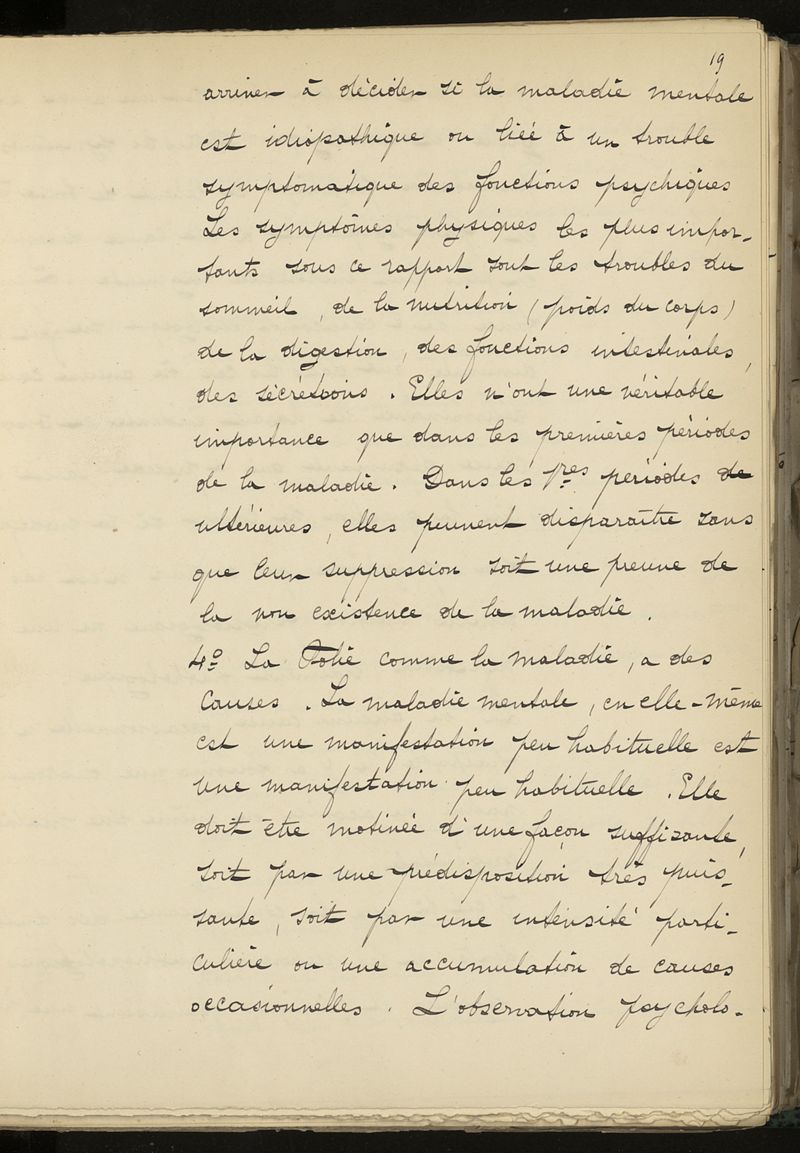 19
arriver à décider si la maladie mentale
est idiopathique ou liée à un trouble
symptomatique des fonctions psychiques
Les symptômes physiques les plus impor-
tants sous ce rapport sont les troubles du
sommeil, de la nutrition (poids du corps)
de la digestion, des fonctions intestinales,
des sécrétions. Elles n'ont une véritable
importance que dans les premières périodes
de la maladie. Dans les 1res périodes de
ultérieures, elles peuvent disparaître sans
que leur suppression soit une preuve de
la non existence de la maladie.
4º La Folie comme la maladie, a des
causes. La maladie mentale, en elle-même
est une manifestation peu habituelle est
une manifestation peu habituelle. Elle
doit être motivée d'une façon suffisante,
soit par une prédisposition très puis-
sante, soit par une intensité parti-
culière ou une accumulation de causes
occasionnelles. L'observation psycholo-